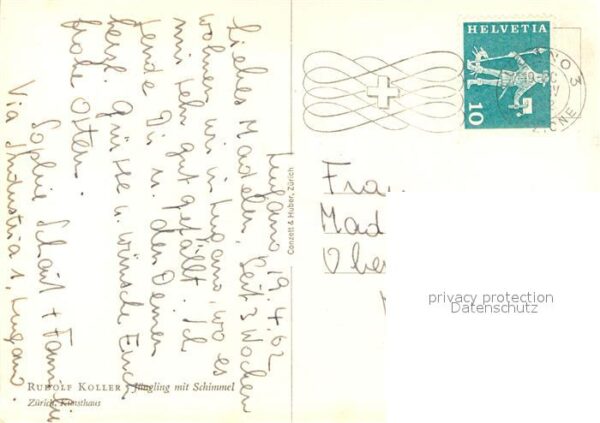 Lugano 19.4.62
Liebes Madelin, Seit 3 Wochen
wohnen wir in Lugano, wo es
mir sehr gut gefällt. Ich
sende Dir u. den Deinen
herzl. Grüsse u. wünsche Euch
frohe Ostern.
Sophie + Familie
Via Industria 1, Lugano.
RUDOLF KOLLER · Jüngling mit Schimmel
Zürich, Kunsthaus
Conzett & Huber, Zürich
HELVETIA
10
NO 3
ZIONE
Fra
Mad
Obe
privacy protection
Datenschutz